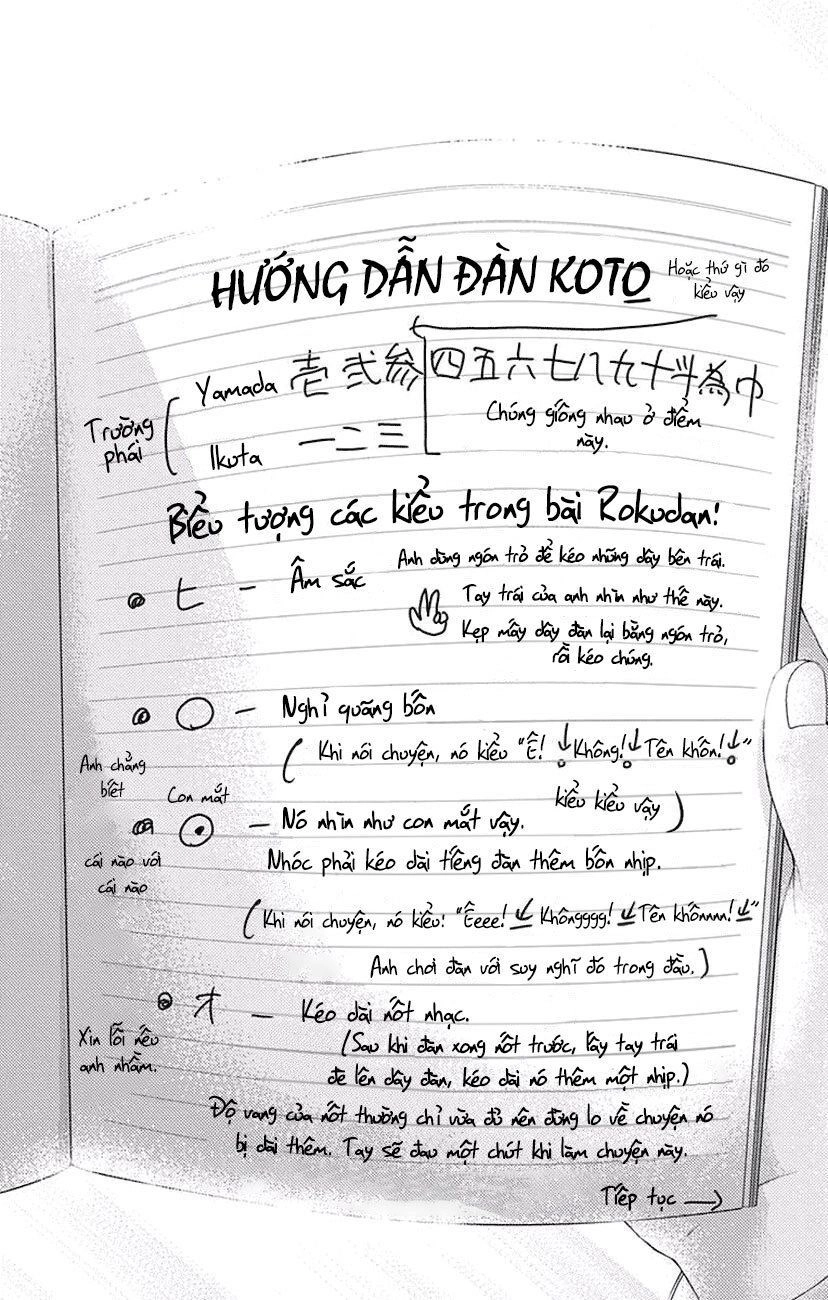 HƯỚNG DẪN ĐÀN KOTO
Hoặc thứ gì đó
kiểu vậy
Trường
phái
Yamada 壱 弐 参 四 五 六 七 八 九 十 斗 為 巾
Chúng giống nhau ở điểm
này.
Ikuta 一 二 三
Biểu tượng các kiểu trong bài Rokudan!
ヒ - Âm sắc
Anh dùng ngón trỏ để kéo những dây bên trái.
Tay trái của anh nhìn như thế này.
Kẹp mấy dây đàn lại bằng ngón trỏ,
rồi kéo chúng.
○ - Nghỉ quãng bốn
(Khi nói chuyện, nó kiểu "Ê! ↓ Không! ↓ Tên khốn! ↓"
kiểu kiểu vậy)
Anh chẳng
biết
cái nào với
cái nào
Con mắt
⊙ - Nó nhìn như con mắt vậy.
Nhóc phải kéo dài tiếng đàn thêm bốn nhịp.
(Khi nói chuyện, nó kiểu: "Êeee! ↓ Khôngggg! ↓ Tên khốnnnn! ↓"
Anh chơi đàn với suy nghĩ đó trong đầu.)
オ - Kéo dài nốt nhạc.
Xin lỗi nếu
anh nhầm.
(Sau khi đàn xong nốt trước, lấy tay trái
đè lên dây đàn, kéo dài nó thêm một nhịp.)
Độ vang của nốt thường chỉ vừa đủ nên đừng lo về chuyện nó
bị dài thêm. Tay sẽ đau một chút khi làm chuyện này.
Tiếp tục →